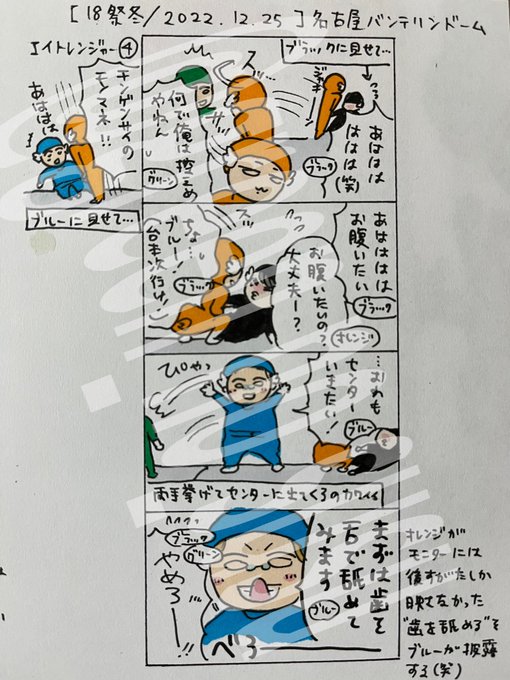 [18祭冬/2022.12.25]名古屋バンテリンドーム
エイトレンジャー④
ブラックに見せて…
あははは
ははは(笑)
ブラック
スッ…
何で俺は控えめ
やねん
グリーン
チンゲンサイの
モノマネ!!
あははは
ブルーに見せて…
あはははは
お腹いたい
ブラック
お腹いたいの?
大丈夫ー?
オレンジ
スッ
ちょ…
ブルー!
(台本次行け!)
ブラック
…おれも
センター
いきたい!
ブルー
ぴゃっ
両手挙げてセンターに出てくるのカワイイ
まずは歯を
舌で舐めて
みます
ブルー
ブラック
グリーン
やめろー!!
べろ
オレンジが
モニターには
後すがたしか
映せなかった
"歯を舐める"を
ブルーが披露
する(笑)